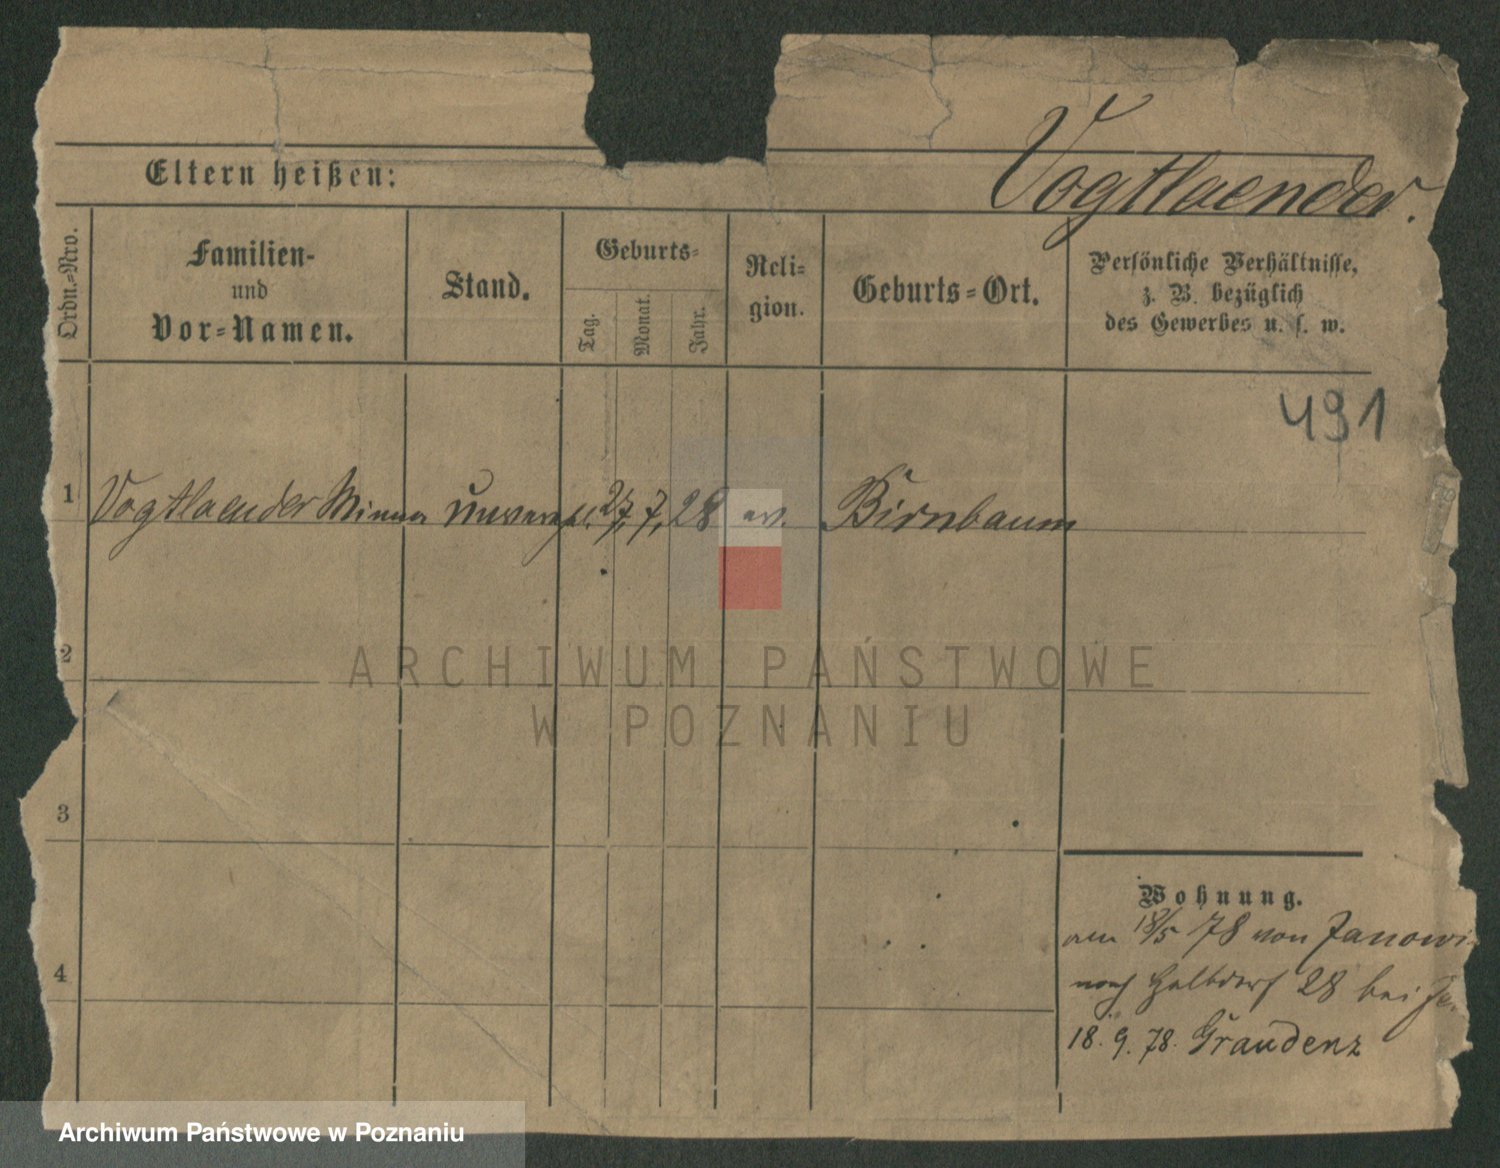 Vogtlaender.
Eltern heißen:
Ordn.-Nro.
Familien-
und
Vor-Namen.
Stand.
Geburts-
Tag.
Monat.
Jahr.
Reli-
gion.
Geburts-Ort.
Persönliche Verhältnisse,
z. B. bezüglich
des Gewerbes u. s. w.
491
1 Vogtlaender Minna unvereh. 27. 7. 28 ev. Birnbaum
2
3
4
Wohnung.
am 18/5 78 von Janowi
nach Halbdorf 28 bei
18. 9. 78. Graudenz
ARCHIWUM PAŃSTWOWE
W POZNANIU
Archiwum Państwowe w Poznaniu